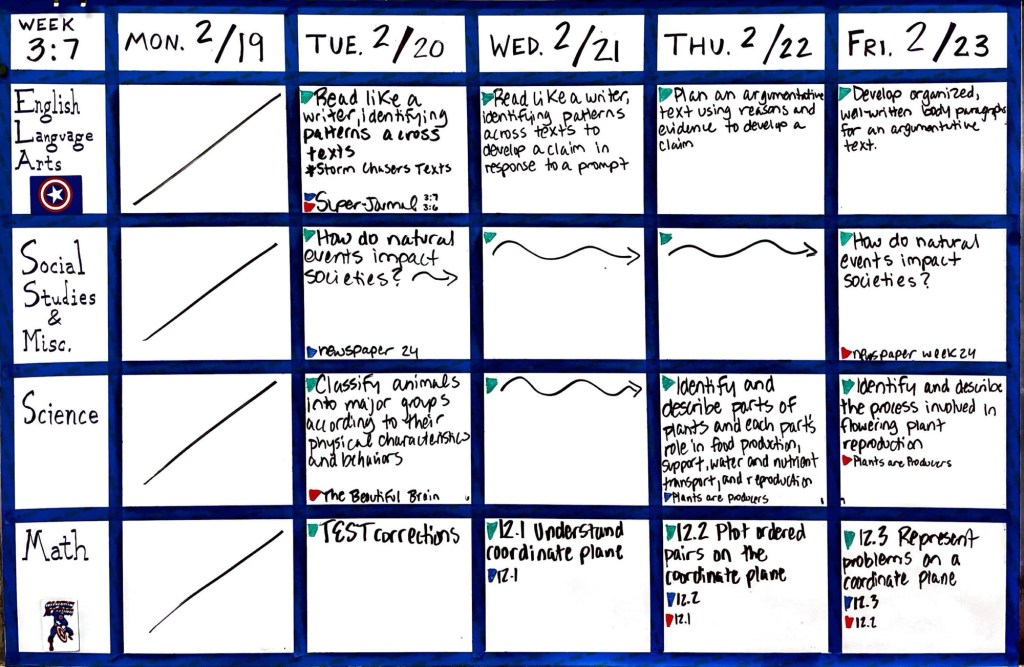 WEEK
3:7
MON. 2/19
TUE. 2/20
WED. 2/21
THU. 2/22
FRI. 2/23
English
Language
Arts
Read like a
writer, identifying
patterns across
texts
*Storm Chasers Texts
Super-Journal 3:7
3:6
Read like a writer,
identifying patterns
across texts to
develop a claim in
response to a prompt
Plan an argumentative
text using reasons and
evidence to develop a
claim
Develop organized,
well-written body paragraphs
for an argumentative
text.
Social
Studies
&
Misc.
How do natural
events impact
societies?
newspaper 24
How do natural
events impact
societies?
newspaper week 24
Science
Classify animals
into major groups
according to their
physical characteristics
and behaviors
The Beautiful Brain
Identify and
describe parts of
plants and each part's
role in food production,
support, water and nutrient
transport, and reproduction
Plants are Producers
Identify and describe
the process involved in
flowering plant
reproduction
Plants are Producers
Math
TEST corrections
12.1 Understand
coordinate plane
12.1
12.2 Plot ordered
pairs on the
coordinate plane
12.2
12.1
12.3 Represent
problems on a
coordinate plane
12.3
12.2